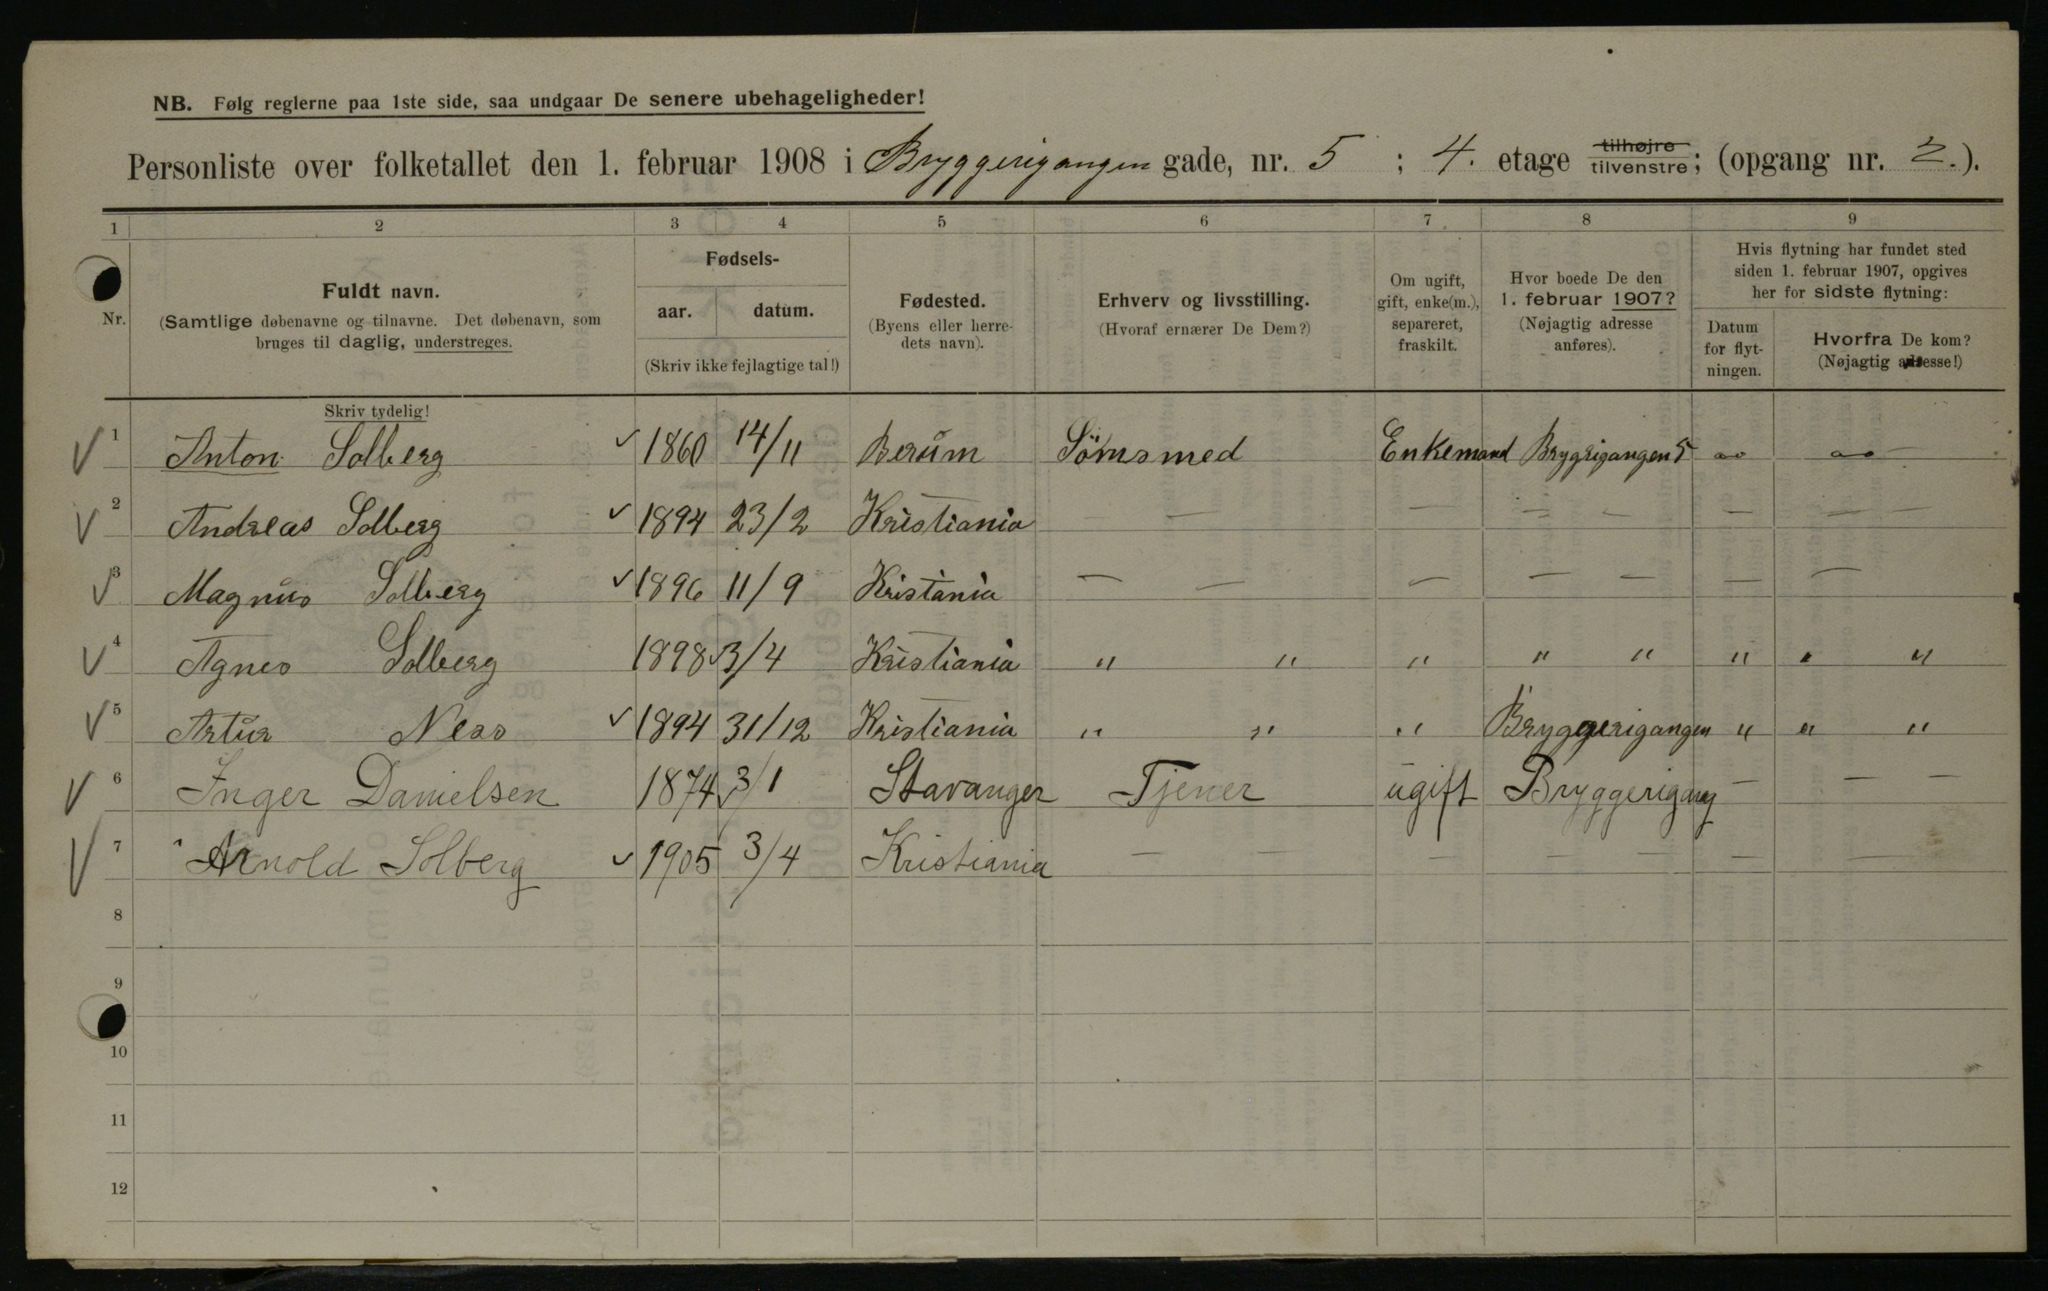 NB. Følg reglerne paa 1ste side, saa undgaar De senere ubehageligheder!
Personliste over folketallet den 1. februar 1908 i Bryggerigangen gade, nr. 5 ; 4. etage tilhøjre tilvenstre; (opgang nr. 2.).
1 2 3 4 5 6 7 8 9
Nr.
Fuldt navn.
(Samtlige døbenavne og tilnavne. Det døbenavn, som
bruges til daglig, understreges.
Skriv tydelig!
Fødsels-
aar. datum.
(Skriv ikke fejlagtige tal!)
Fødested.
(Byens eller herre-
dets navn).
Erhverv og livsstilling.
(Hvoraf ernærer De Dem?)
Om ugift,
gift, enke(m.),
separeret,
fraskilt.
Hvor boede De den
1. februar 1907?
(Nøjagtig adresse
anføres).
Hvis flytning har fundet sted
siden 1. februar 1907, opgives
her for sidste flytning:
Datum
for flyt-
ningen.
Hvorfra De kom?
(Nøjagtig adresse!)
√ 1 Anton Solberg ✓ 1860 14/11 Berum Sömsmed Enkemand Brygrigangen 5
√ 2 Andreas Solberg ✓ 1894 23/2 Kristiania — — — — — — —
√ 3 Magnus Solberg ✓ 1896 11/9 Kristania — — — — — — —
√ 4 Agnes Solberg 1898 ✓ 3/4 Kristiania " " " " " " " "
√ 5 Artur Ness ✓ 1894 31/12 Kristiania " " " Bryggerigangen " " "
√ 6 Inger Danielsen 1874 ✓ 3/1 Stavanger Tjener ugift Bryggerigang — — —
√ 7 Arnold Solberg ✓ 1905 3/4 Kristiania — — — — — — —
8
9
10
11
12